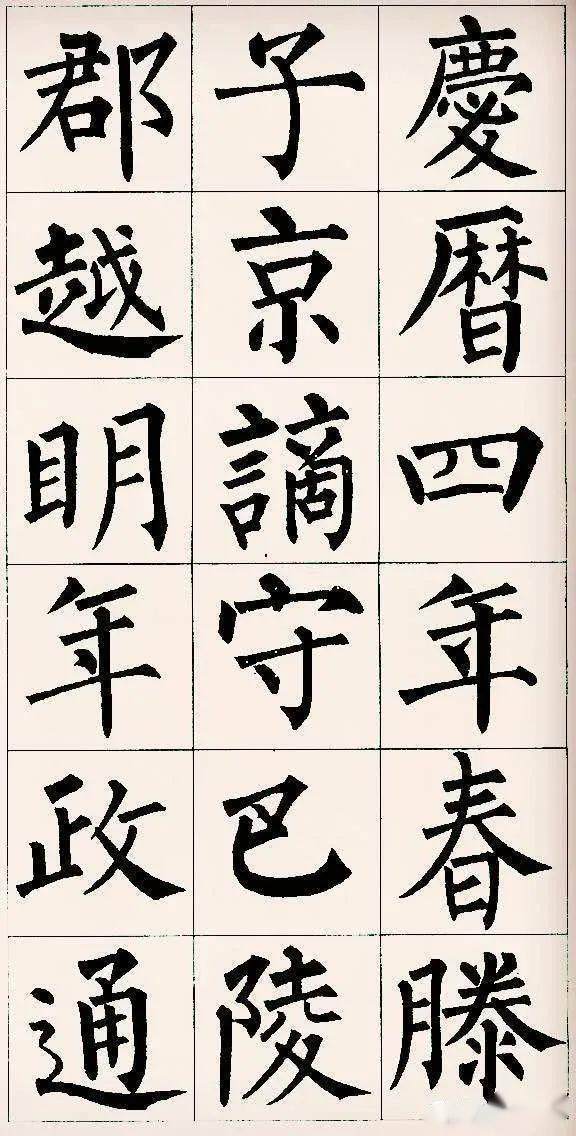 慶暦四年春滕
子京謫守巴陵
郡越明年政通